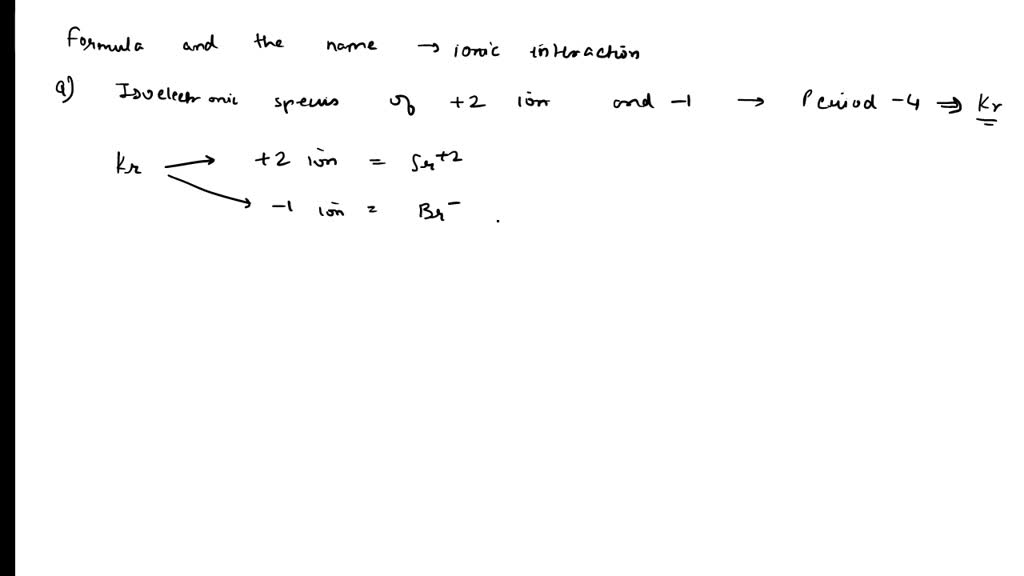 Formula and the name → ionic interaction
a) Isoelectronic species of +2 ion and -1 → Period -4 ⇒ Kr
Kr → +2 ion = Sr+2
→ -1 ion = Br-.